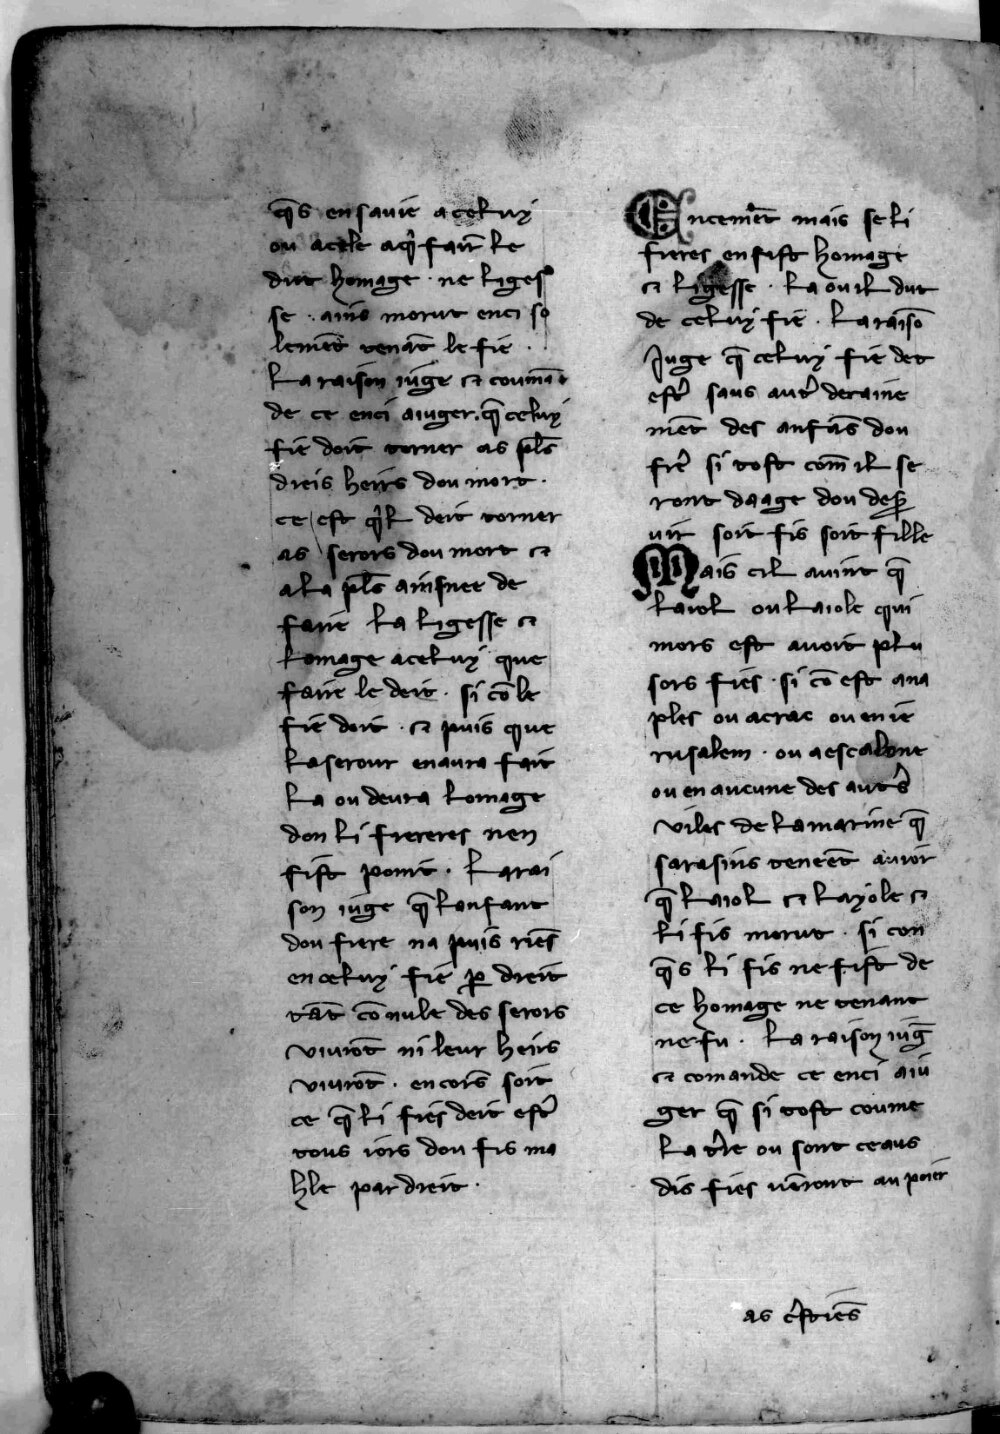 q̃s en sa uie a celuy
ou acele aqͥ fair̃ le
dut homage · ne liges
se · ains morut enci so
lemẽt tenãt le fie ·
La raison iuge et coumã
de ce enci aiuger · q̃ celuy
fie doit torner as pl̃s
dreis heirs dou mort ·
ce est qͥl deit torner
as serors dou mort et
a la pl̃s ainsnee de
faire la ligesse et
lomage a celuy que
faire le deit · si cõ le
fie doit · et puis que
la serour en aura fait
la ou deura lomage
don li frereres nen
fist point · La rai
son iuge q̃ lanfant
dou frere na puis riẽs
en celuy fie ꝑ dreit
tãt cõ nule des serors
viurõt ni leur heirs
viurõt · encors soit
ce q̃ li fies deit estr̉
tous iors dou fis ma
hle par dreit ·
Encemẽt mais se li
freres en fist homage
et ligesse · la ou il dut
de celuy fie · La raisõ
Juge q̃ celuy fie det
estr̉ saus autr̉ deraine
mẽt des anfãs dou
fr̉e si tost com̃ il se
ront daage dou deß
uir soit fis soit fille
Mais cil auint q̃
laiol ou laiole qui
mors est auoit plu
sors fies · si cõ est ana
ples ou acrac ou en ie
rusalem · ou a escalone
ou en aucune des autr̉s
viles de la marine q̃
sarasins teneẽt auior
q̃ laiol et layole et
li fis morut · si con
q̃s li fis ne fist de
ce homage ne tenant
ne fu · La raison iug̃
et comande ce enci aiu
ger q̃ si tost coume
la tr̉e ou sont ceaus
dis fies uẽront au poier
as cr̉stiẽs